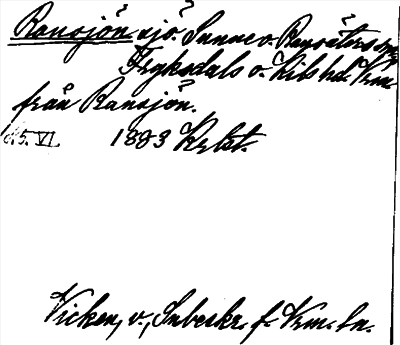 Ransjön sjö. Sunne o. Ransäters snr
Fryksdals o. Kils hd. Vrm.
från Ransjön.
d. 5. VI. 1883 Krlst.
Vicken, v., Inbeskr. f. Vrm. ln.